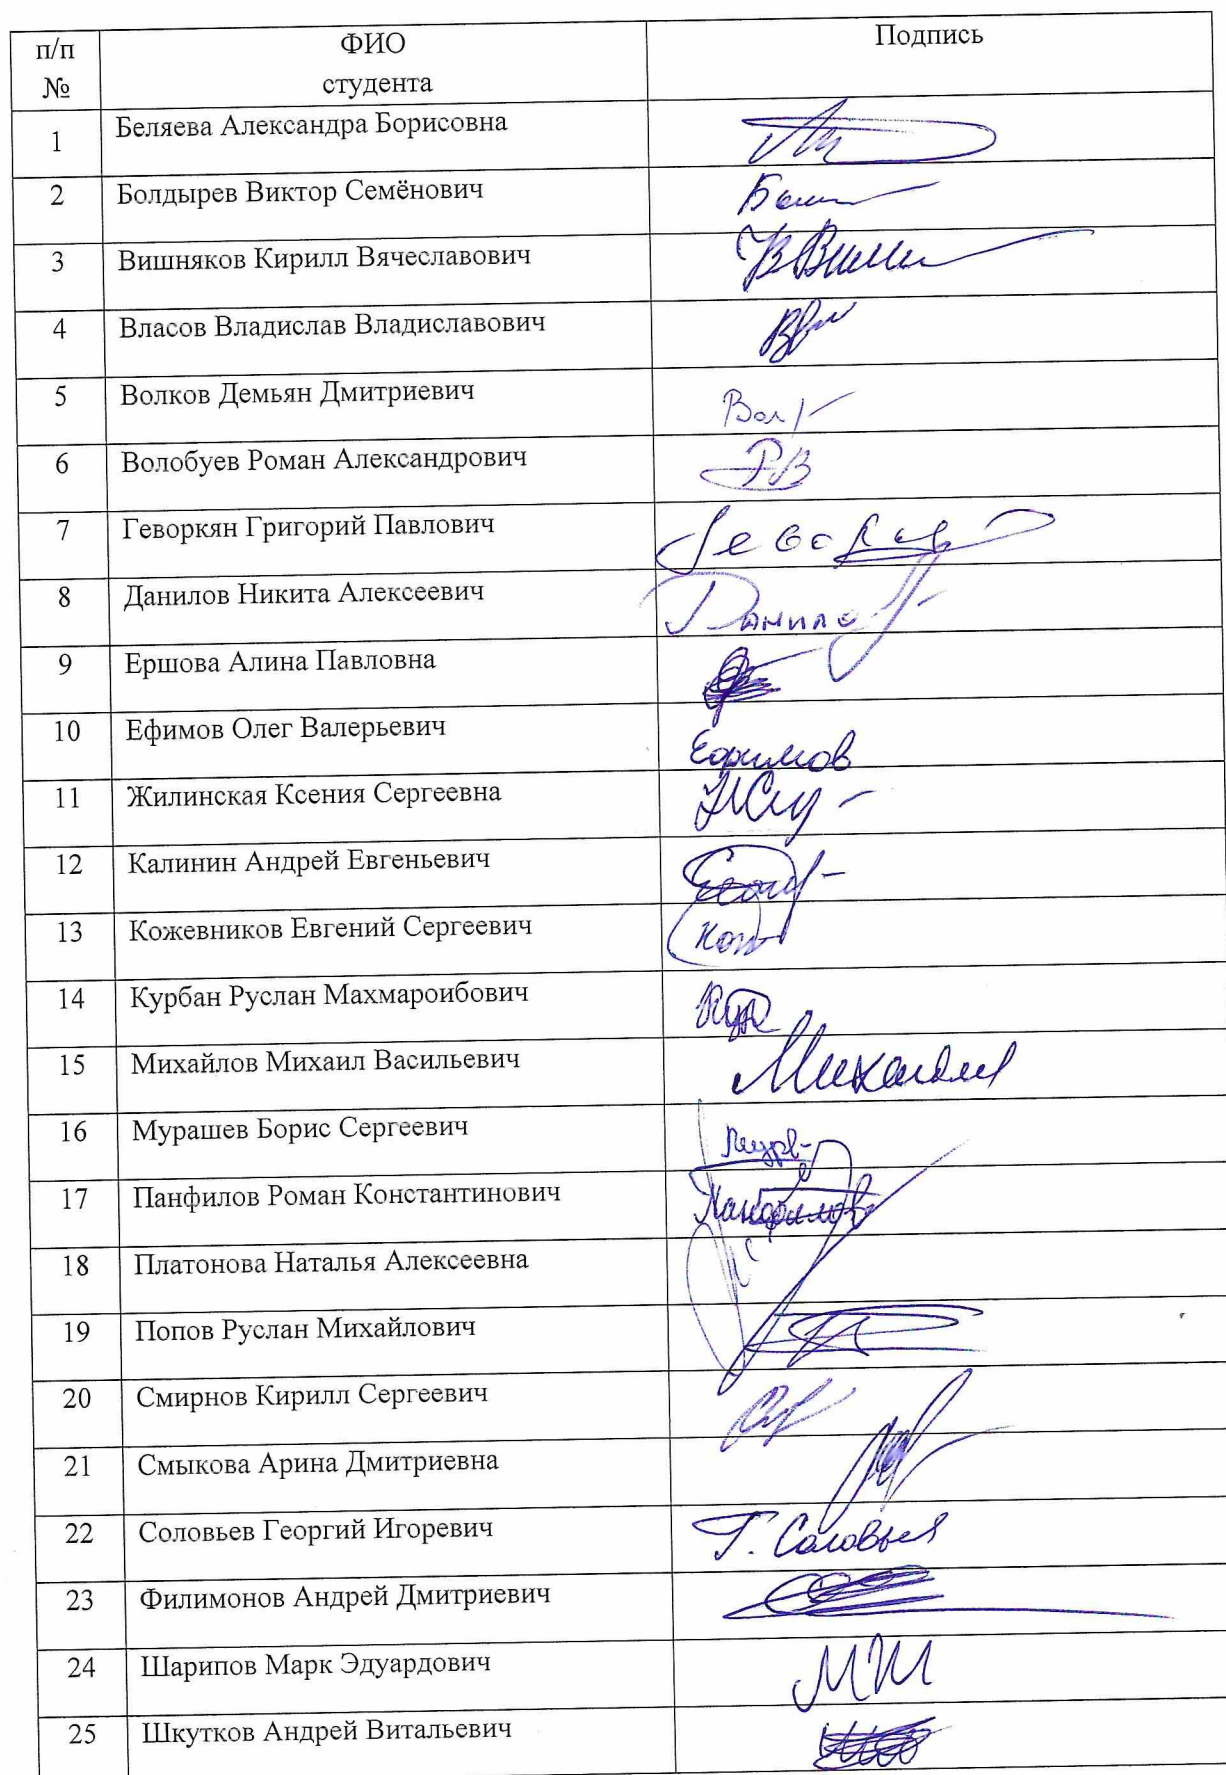 п/п № ФИО студента Подпись
1 Беляева Александра Борисовна
2 Болдырев Виктор Семёнович
3 Вишняков Кирилл Вячеславович
4 Власов Владислав Владиславович
5 Волков Демьян Дмитриевич
6 Волобуев Роман Александрович РВ
7 Геворкян Григорий Павлович
8 Данилов Никита Алексеевич
9 Ершова Алина Павловна
10 Ефимов Олег Валерьевич Ефимов
11 Жилинская Ксения Сергеевна
12 Калинин Андрей Евгеньевич
13 Кожевников Евгений Сергеевич
14 Курбан Руслан Махмароибович
15 Михайлов Михаил Васильевич
16 Мурашев Борис Сергеевич
17 Панфилов Роман Константинович Панфилов
18 Платонова Наталья Алексеевна
19 Попов Руслан Михайлович
20 Смирнов Кирилл Сергеевич
21 Смыкова Арина Дмитриевна
22 Соловьев Георгий Игоревич Г. Соловьев
23 Филимонов Андрей Дмитриевич
24 Шарипов Марк Эдуардович МШ
25 Шкутков Андрей Витальевич